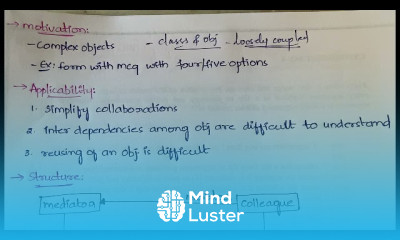 → motivation:
- Complex objects - class & obj - loosely coupled
- Ex: form with mcq with four/five options
→ Applicability:
1. Simplify collaborations
2. Inter dependencies among obj are difficult to understand
3. reusing of an obj is difficult
→ Structure:
mediator colleague
Mind
Luster